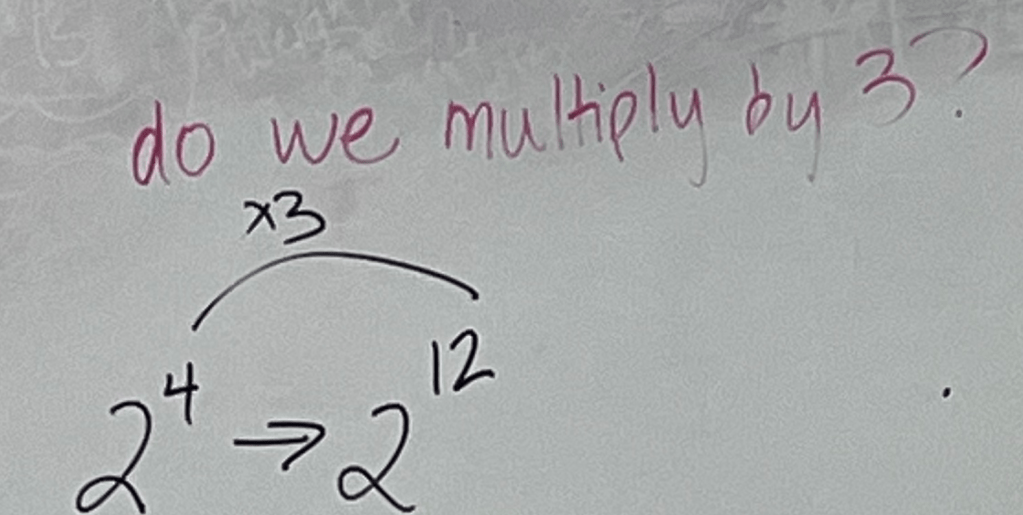 do we multiply by 3?
x3
2^4 → 2^12